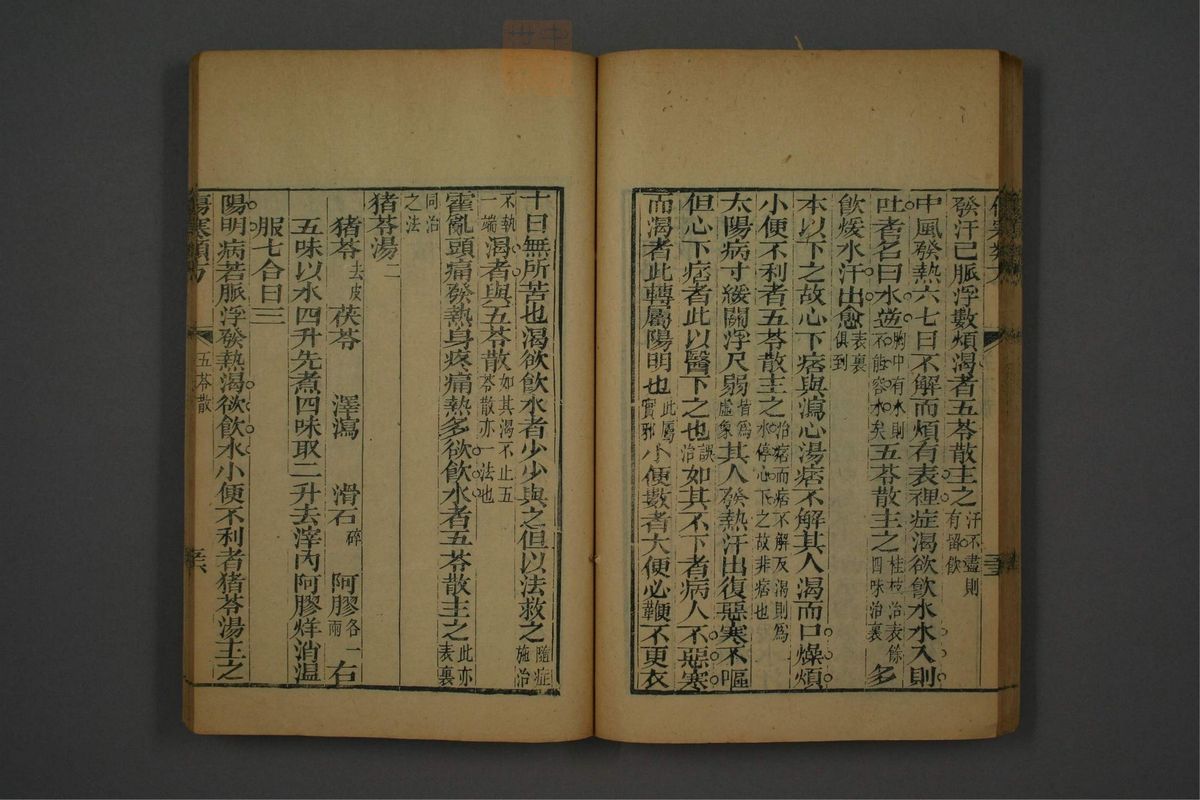 發汗已脈浮數煩渴者五苓散主之汗不盡則有留飲
中風發熱六七日不解而煩有表裡症渴欲飲水水入則
吐者名曰水逆胸中有水則不能容水矣五苓散主之桂枝治表餘四味治裏多
飲煖水汗出愈表裏俱到
本以下之故心下痞與瀉心湯痞不解其人渴而口燥煩
小便不利者五苓散主之治痞而痞不解及渴則為水停心下之故非痞也
太陽病寸緩關浮尺弱皆為虛象其人發熱汗出復惡寒不嘔
但心下痞者此以醫下之也誤治如其不下者病人不惡寒
而渴者此轉屬陽明也此屬實邪小便數者大便必鞕不更衣
十日無所苦也渴欲飲水者少少與之但以法救之隨症施治
不執一端渴者與五苓散如其渴不止五苓散亦一法也
霍亂頭痛發熱身疼痛熱多欲飲水者五苓散主之此亦表裏
同治之法
猪苓湯二
猪苓去皮 茯苓 澤瀉 滑石碎 阿膠各一兩 右
五味以水四升先煮四味取二升去滓內阿膠烊消温
服七合日三
陽明病若脈浮發熱渴欲飲水小便不利者猪苓湯主之
傷寒類方
五苓散